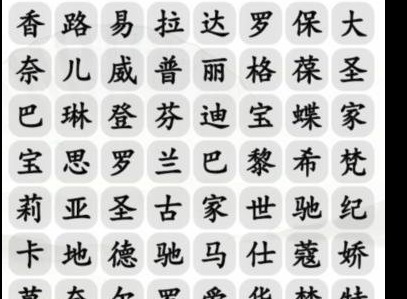 香路易拉达罗保大
奈儿威普丽格葆圣
巴琳登芬迪宝蝶家
宝思罗兰巴黎希梵
莉亚圣古家世驰纪
卡地德驰马仕蔻娇
奈尔罗爱华梵特